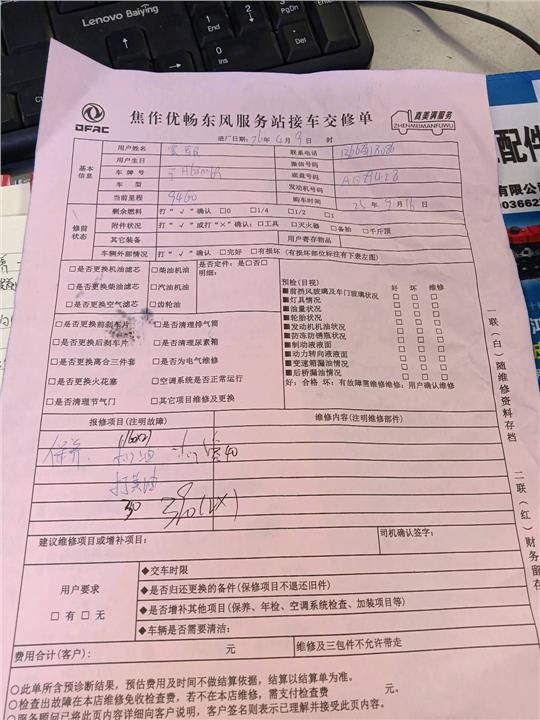 Lenovo Baiying
PgDn
End
DFAC
焦作优畅东风服务站接车交修单
真美满服务
ZHENMEIMANFUWU
进厂日期: 26年4月9日 时
基本信息
用户姓名
联系电话
用户生日
微信号码
车牌号
底盘号码
车型
发动机号码
当前里程 9460
购车时间 25年9月16日
修前状态
剩余燃料 打“√”确认 □0 □1/4 □1/2 □1
附件状况 打“√”或打“×”确认: □工具 □灭火器 □备胎 □千斤顶
其它装备
用户寄存物品
车辆外部情况 打“√”确认 □完好 □有损坏 (有损坏部位标注有下表左图)
□是否更换机油滤芯 □柴油机油
□是否更换柴油滤芯 □汽油机油
□是否更换空气滤芯 □齿轮油
是否定件: 是□否□
明细:
□是否更换前刹车片 □是否清理排气筒
□是否更换后刹车片 □是否清理尿素箱
□是否更换离合三件套 □是否为电气维修
□是否更换火花塞 □空调系统是否正常运行
□是否清理节气门 □其它项目维修及更换
预检(目视) 好 坏 维修
■前挡风玻璃及车门玻璃状况 □ □ □
■灯具情况 □ □ □
■油量状况 □ □ □
■轮胎状况 □ □ □
■发动机机油状况 □ □ □
■防冻防锈瓶状况 □ □ □
■制动液液面 □ □ □
■动力转向液液面 □ □ □
■变速箱漏油情况 □ □ □
■后桥漏油情况 □ □ □
好: 合格 坏: 有故障需维修维修: 用户确认维修
报修项目(注明故障)
维修内容(注明维修部件)
保养
打黄油
30
建议维修项目或增补项目:
司机确认签字:
用户要求
□有 □无
◆交车时限
◆是否归还更换的备件(保修项目不退还旧件)
◆是否增补其他项目(保养、年检、空调系统检查、加装项目等)
◆车辆是否需要清洁:
费用合计(客户): 元
维修及三包件不允许带走
○此单所含预诊断结果, 预估费用及时间不做结算依据, 结算以结算单为准。
○检查出故障在本店维修免收检查费, 若不在本店维修, 需支付检查费 元。
○服务顾问已将此页内容详细向客户说明, 客户签名则表示已理解并接受此页内容。
一联(白)随维修资料存档
二联(红)财务留存
配件
有限公司